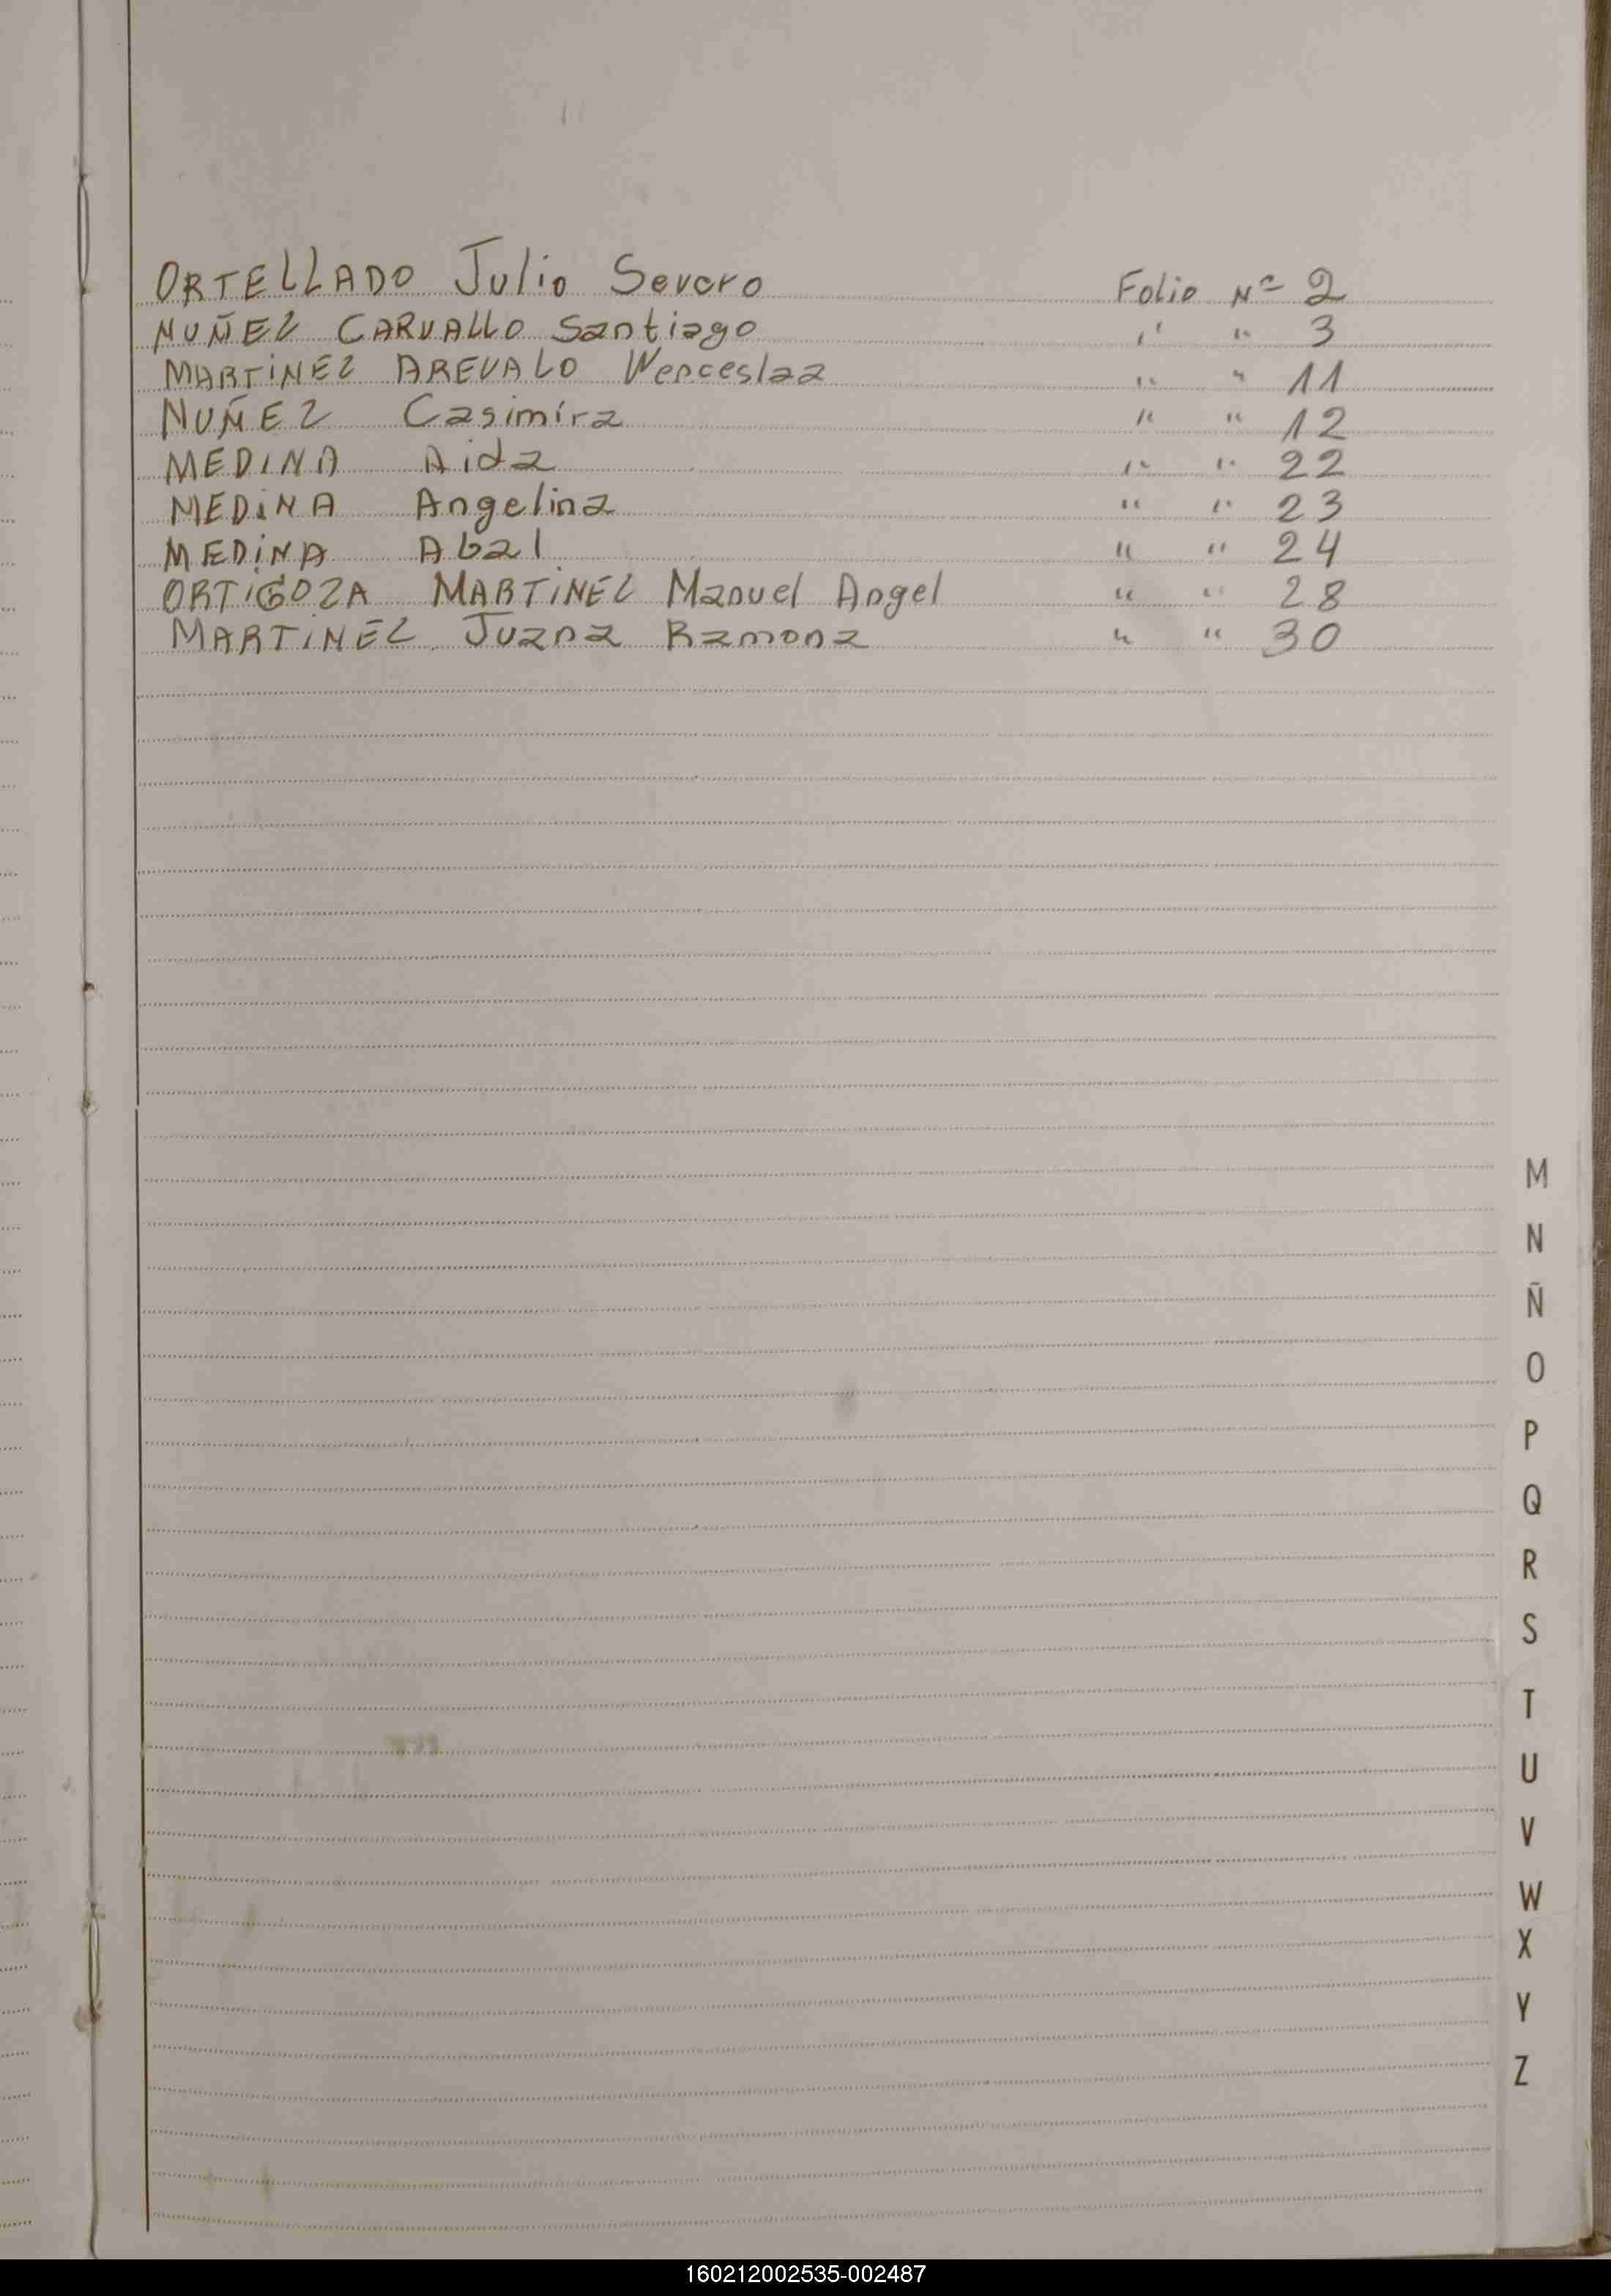 ORTELLADO Julio Severo Folio Nº 2
NUÑEZ CARVALLO Santiago " " 3
MARTiNEZ AREVALO Wenceslaa " " 11
NUÑEZ Casimira " " 12
MEDINA Aida " " 22
MEDiNA Angelina " " 23
MEDiNA Abal " " 24
ORTiGOZA MARTiNEZ Manuel Angel " " 28
MARTiNEZ Juana Ramona " " 30
M
N
Ñ
O
P
Q
R
S
T
U
V
W
X
Y
Z
160212002535-002487